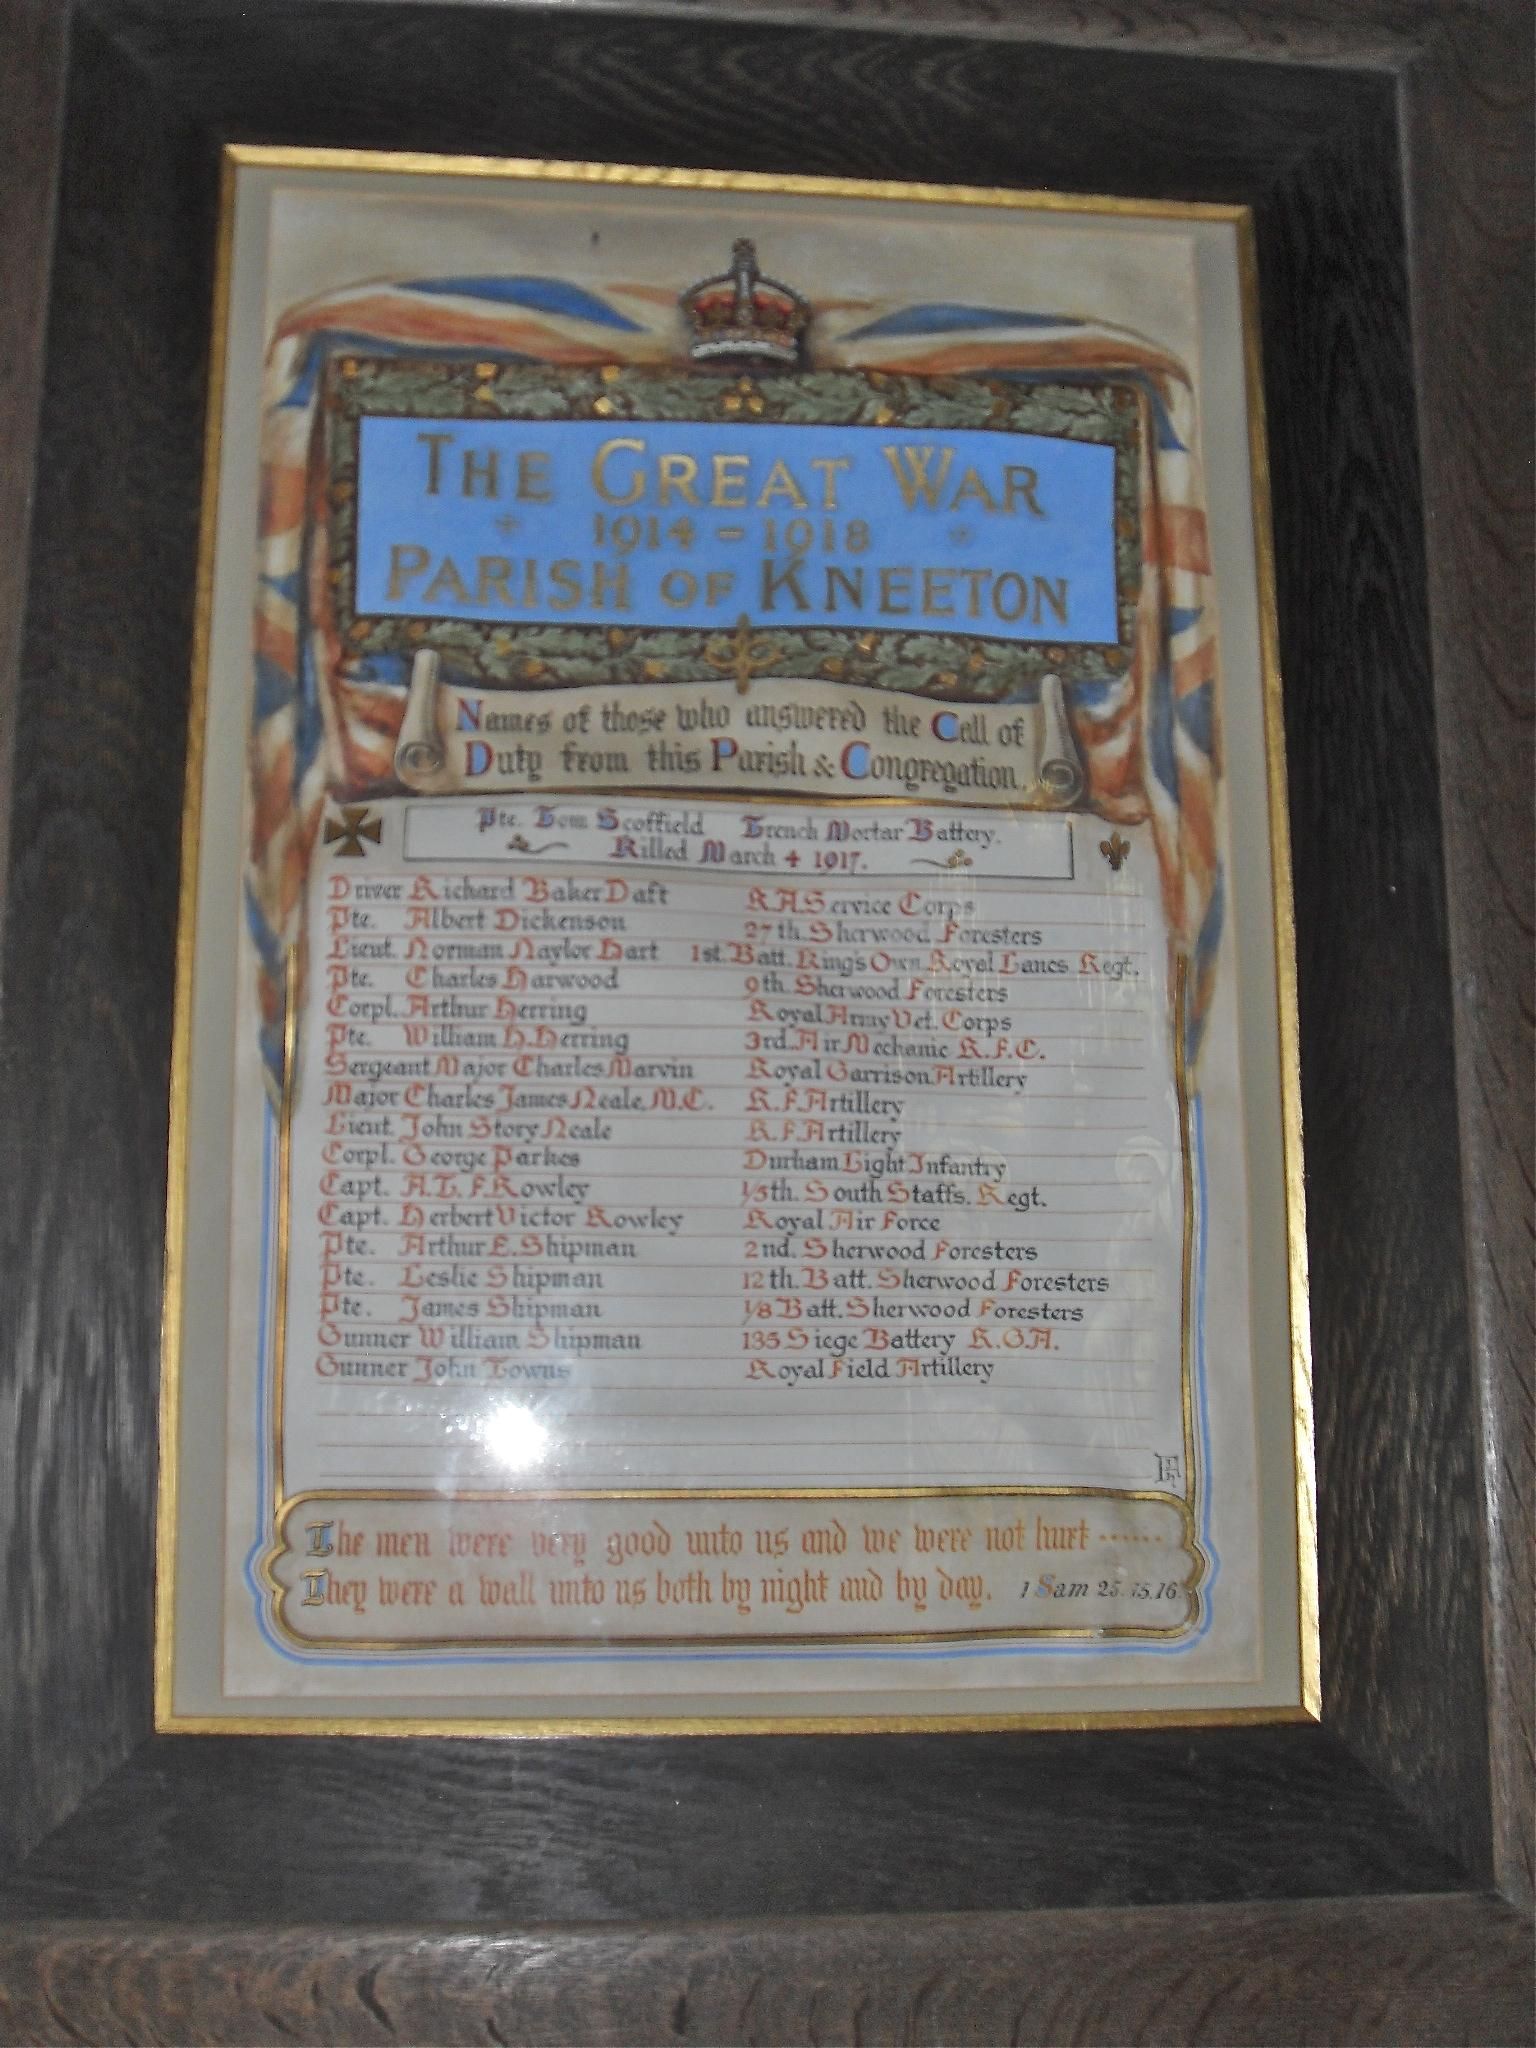 THE GREAT WAR
1914 - 1918
PARISH OF KNEETON
Names of those who answered the Call of
Duty from this Parish & Congregation.
Pte. Tom Scoffield Trench Mortar Battery.
Killed March 4 1917.
Driver Richard Baker Daft R.A. Service Corps
Pte. Albert Dickenson 27th. Sherwood Foresters
Lieut. Norman Naylor Hart 1st. Batt. King's Own Royal Lancs. Regt.
Pte. Charles Harwood 9th. Sherwood Foresters
Corpl. Arthur Herring Royal Army Vet. Corps
Pte. William H. Herring 3rd. Air Mechanic R.F.C.
Sergeant Major Charles Marvin Royal Garrison Artillery
Major Charles James Neale, M.C. R.F. Artillery
Lieut. John Story Neale R.F. Artillery
Corpl. George Parkes Durham Light Infantry
Capt. A.L.F. Rowley 1/5th. South Staffs. Regt.
Capt. Herbert Victor Rowley Royal Air Force
Pte. Arthur E. Shipman 2nd. Sherwood Foresters
Pte. Leslie Shipman 12th. Batt. Sherwood Foresters
Pte. James Shipman 1/8 Batt. Sherwood Foresters
Gunner William Shipman 135 Siege Battery R.G.A.
Gunner John Towns Royal Field Artillery
The men were very good unto us and we were not hurt ......
They were a wall unto us both by night and by day. 1 Sam 25. 15.16.